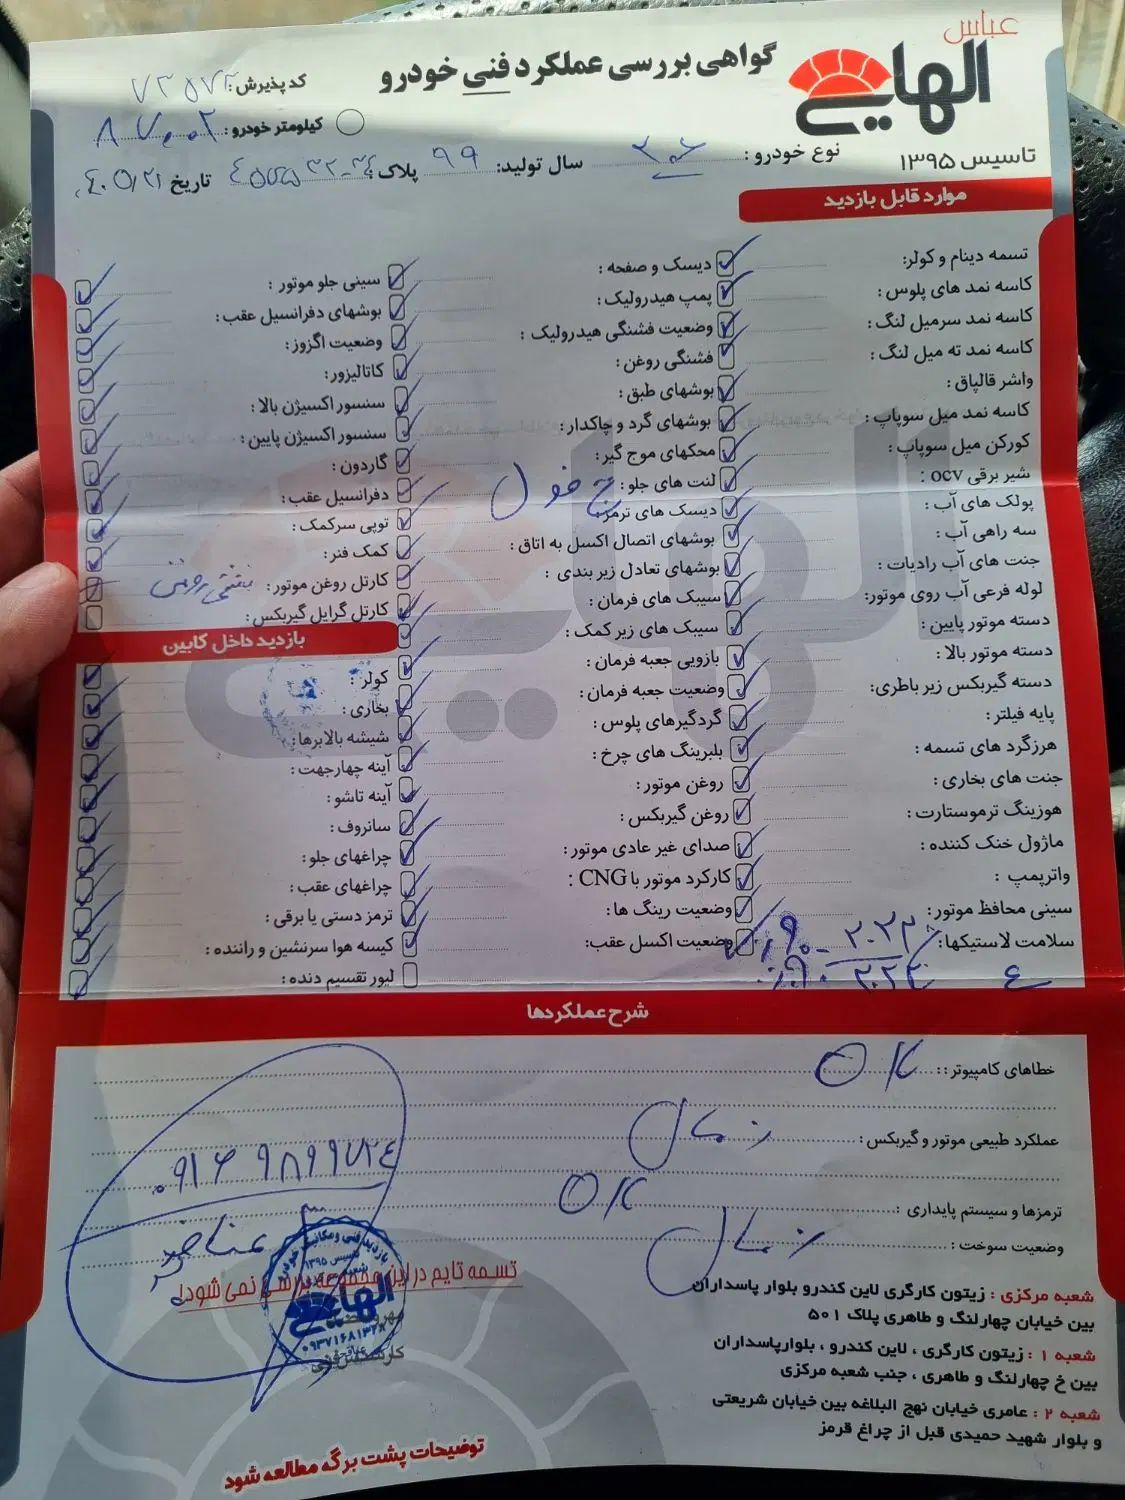 عباس
الهایی
تاسیس ۱۳۹۵
گواهی بررسی عملکرد فنی خودرو
کد پذیرش:
کیلومتر خودرو:
نوع خودرو:
سال تولید: ۹۹
پلاک:
تاریخ
موارد قابل بازدید
تسمه دینام و کولر:
کاسه نمد های پلوس:
کاسه نمد سرمیل لنگ:
کاسه نمد ته میل لنگ:
واشر قالپاق:
کاسه نمد میل سوپاپ:
کورکن میل سوپاپ:
شیر برقی ocv :
پولک های آب:
سه راهی آب:
جنت های آب رادیات:
لوله فرعی آب روی موتور:
دسته موتور پایین:
دسته موتور بالا:
دسته گیربکس زیر باطری:
پایه فیلتر:
هرزگرد های تسمه:
جنت های بخاری:
هوزینگ ترموستارت:
ماژول خنک کننده:
واترپمپ :
سینی محافظ موتور:
سلامت لاستیکها:
دیسک و صفحه:
پمپ هیدرولیک:
وضعیت فشنگی هیدرولیک:
فشنگی روغن:
بوشهای طبق:
بوشهای گرد و چاکدار:
محکهای موج گیر:
لنت های جلو:
دیسک های ترمز:
بوشهای اتصال اکسل به اتاق:
بوشهای تعادل زیر بندی:
سیبک های فرمان:
سیبک های زیر کمک:
بازویی جعبه فرمان:
وضعیت جعبه فرمان:
گردگیرهای پلوس:
بلبرینگ های چرخ:
روغن موتور:
روغن گیربکس:
صدای غیر عادی موتور:
کارکرد موتور با CNG :
وضعیت رینگ ها:
وضعیت اکسل عقب:
سینی جلو موتور:
بوشهای دفرانسیل عقب:
وضعیت اگزوز:
کاتالیزور:
سنسور اکسیژن بالا:
سنسور اکسیژن پایین:
گاردون:
دفرانسیل عقب:
توپی سرکمک:
کمک فنر:
کارتل روغن موتور:
کارتل گرایل گیربکس:
بازدید داخل کابین
کولر:
بخاری:
شیشه بالابرها:
آینه چهارجهت:
آینه تاشو:
سانروف:
چراغهای جلو:
چراغهای عقب:
ترمز دستی یا برقی:
کیسه هوا سرنشین و راننده:
لیور تقسیم دنده:
شرح عملکردها
خطاهای کامپیوتر:: OK
عملکرد طبیعی موتور و گیربکس: نرمال
ترمزها و سیستم پایداری : OK
وضعیت سوخت: نرمال
تسمه تایم در این مجموعه بررسی نمی شود!
شعبه مرکزی : زیتون کارگری لاین کندرو بلوار پاسداران
بین خیابان چهارلنگ و طاهری پلاک ۵۰۱
شعبه ۱ : زیتون کارگری ، لاین کندرو ، بلوارپاسداران
بین خ چهارلنگ و طاهری ، جنب شعبه مرکزی
شعبه ۲ : عامری خیابان نهج البلاغه بین خیابان شریعتی
و بلوار شهید حمیدی قبل از چراغ قرمز
توضیحات پشت برگه مطالعه شود